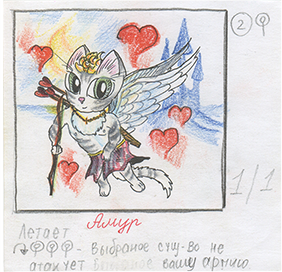 2
1/1
Амур
Летает
- Выбраное сущ-во не
атакует вашу армию